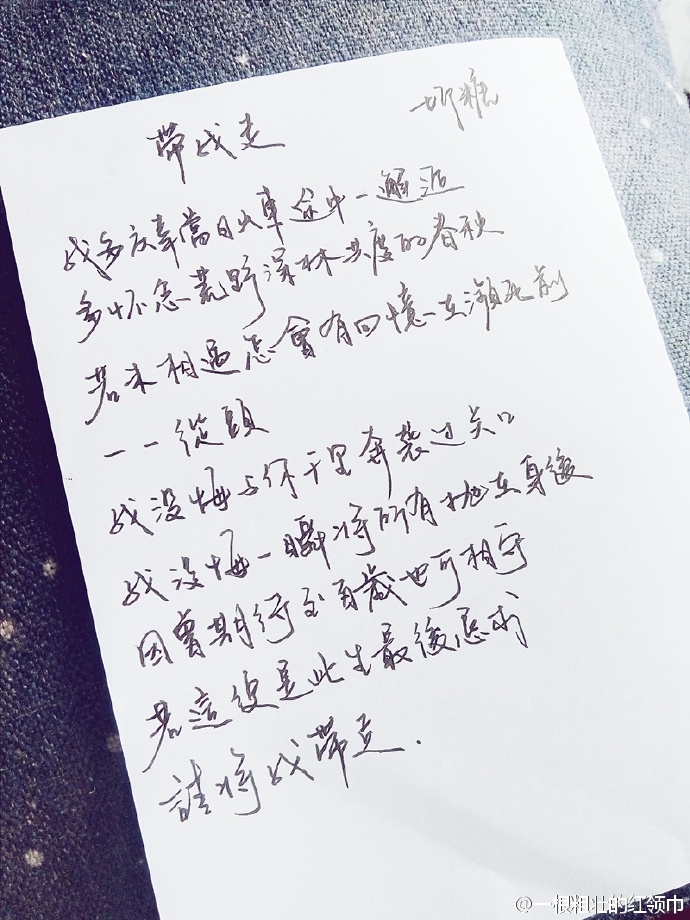 带我走
一邜糖
我多庆幸當日火車途中一邂逅
多怀念荒野深林共度的春秋
若未相遇怎會有回憶在瀕死前
一一從頭
我没悔与你千里奔襲过关口
我没悔一瞬将所有抛在身後
因曾期待至百歲也可相守
若這便是此生最後恳求
請将我带走.
@一根粗壮的红领巾